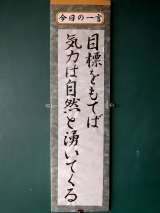 今日の一言
目標をもてば
気力は自然と湧いてくる